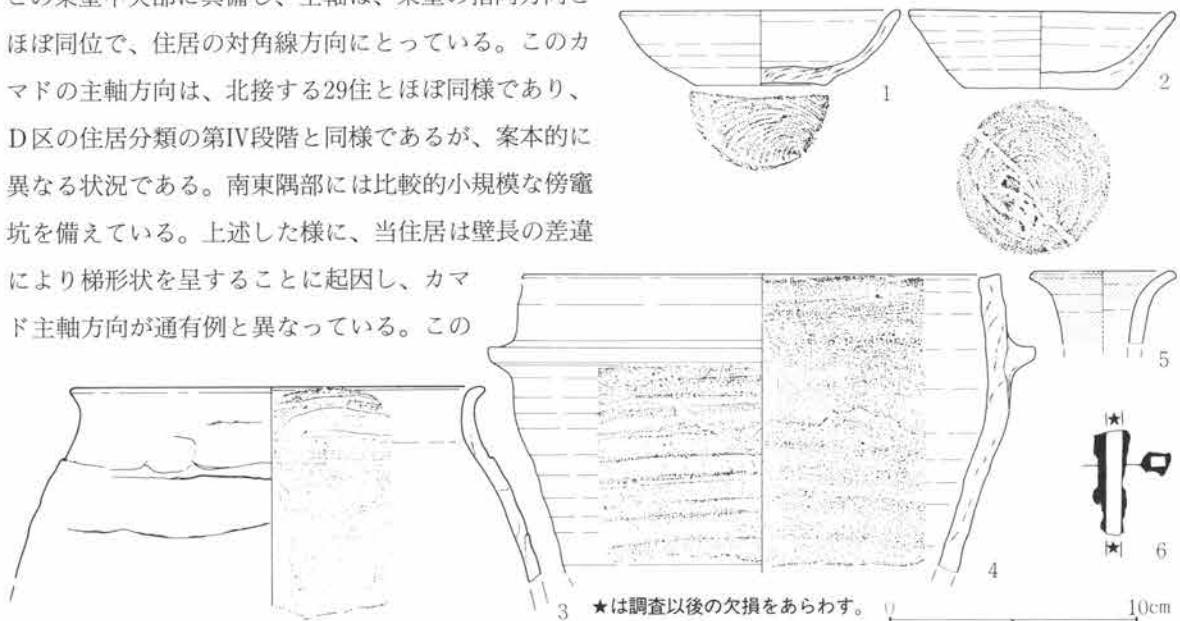 ほぼ同位で、住居の対角線方向にとっている。このカ
マドの主軸方向は、北接する29住とほぼ同様であり、
D区の住居分類の第Ⅳ段階と同様であるが、案本的に
異なる状況である。南東隅部には比較的小規模な傍竈
坑を備えている。上述した様に、当住居は壁長の差違
により梯形状を呈することに起因し、カマ
ド主軸方向が通有例と異なっている。この
1
2
3
4
5
★
★
6
★は調査以後の欠損をあらわす。
0 10cm